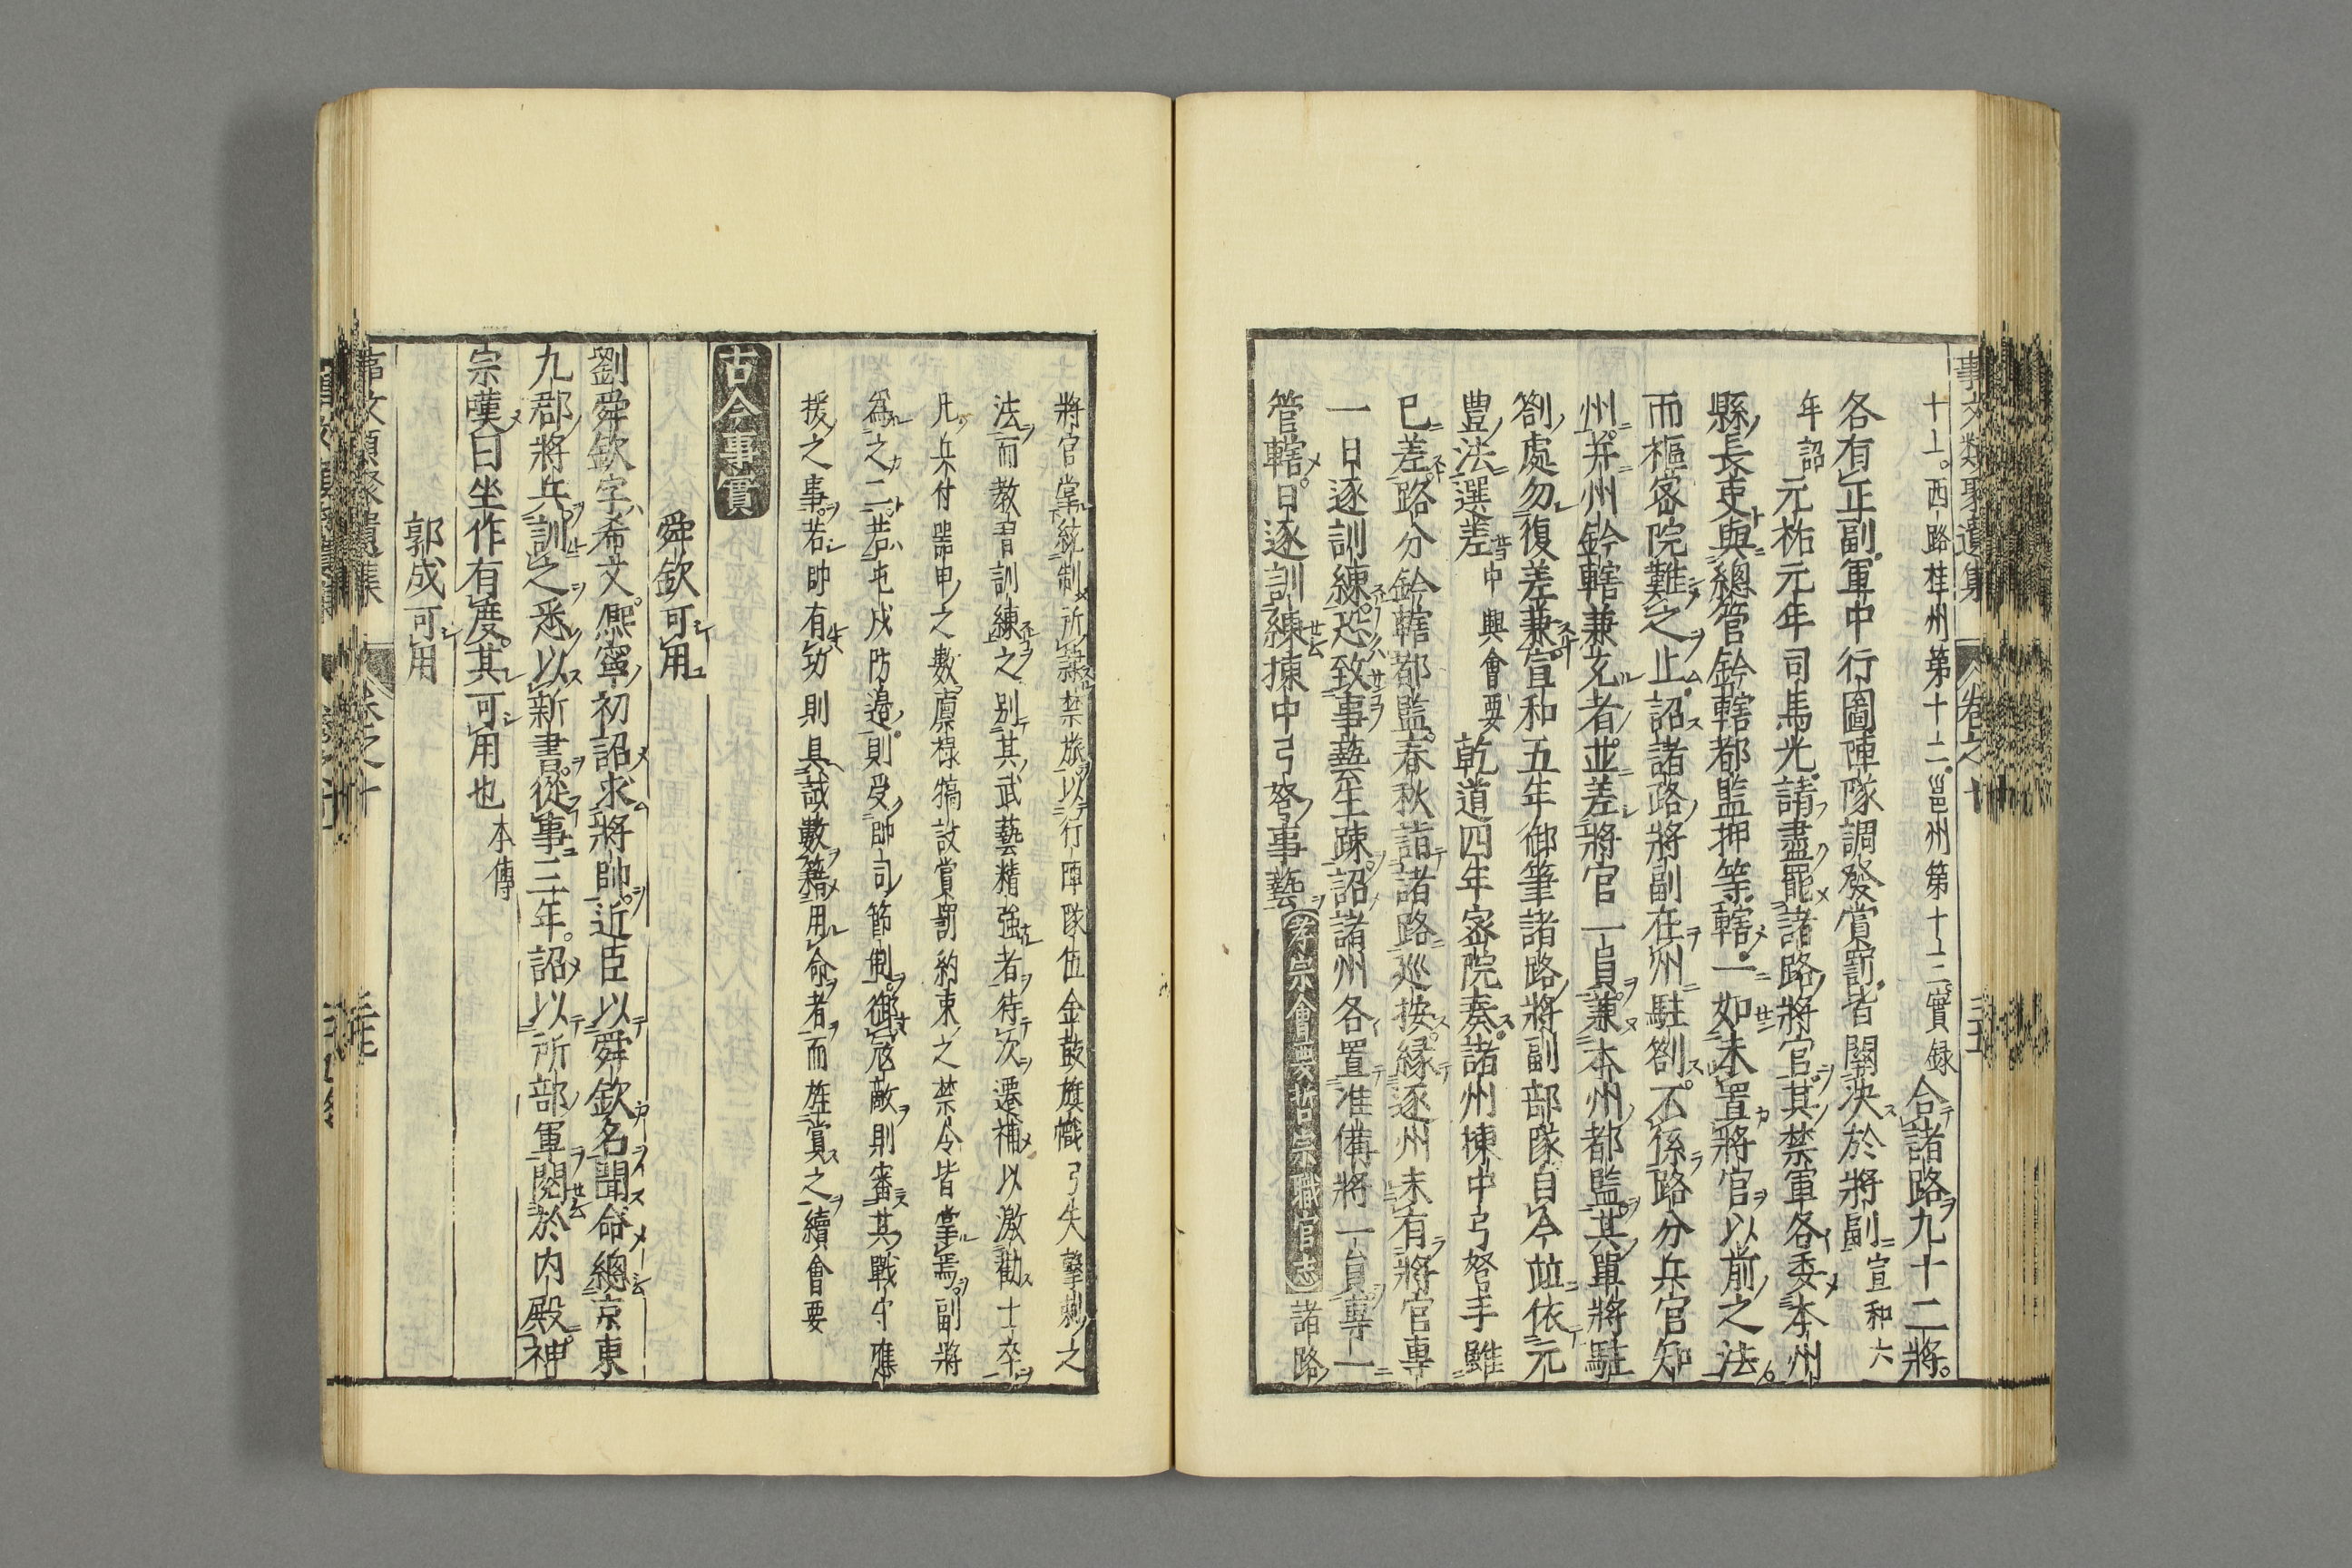 事文類聚遺集 卷之十
十一。西路桂州第十二。邕州第十三。實録 合諸路九十二將。
各有正副。軍中行圖陣隊調發賞罰。皆關決於將副 宣和六
年詔 元祐元年司馬光。請盡罷諸路將官。其禁軍各委本州
縣長吏與總管鈐轄都監押等轄。一如未置將官以前之法
而樞密院難之止。詔諸路將副在州駐劄。不係路分兵官知
州。并州鈐轄兼充者。並差將官一員兼本州都監。其單將駐
劄處勿復差兼。宣和五年御筆諸路將副部隊自今並依元
豊法選差 中興會要 乾道四年密院奏。諸州揀中弓弩手雖
已差。路分鈐轄都監。春秋詣諸路巡按。縁逐州未有將官專
一日逐訓練。恐致事藝生疎。詔諸州各置准備將一員專一
管轄。日逐訓練揀中弓弩事藝 孝宗會要哲宗職官志 諸路
將官掌統制所隷禁旅。以行陣隊伍金鼓旗幟弓矢擊刺之
法。而教習訓練之別其武藝精強者。待次遷補以激勸士卒
凡兵付器甲之數廩祿犒設賞罰約束之禁令皆掌焉。副將
爲之二。若屯戍防邊。則受帥司節制。禦寇敵則審其戰守應
援之事。若師有功則具誠數籍用命者而旌賞之 續會要
古今事實
舜欽可用
劉舜欽字希文。熈寧初詔求將帥。近臣以舜欽名聞命總京東
九郡將兵。訓之悉以新書。從事三年。詔以所部軍閲於内殿。神
宗嘆曰坐作有度。其可用也 本傳
郭成可用
事文類聚遺集 卷之十